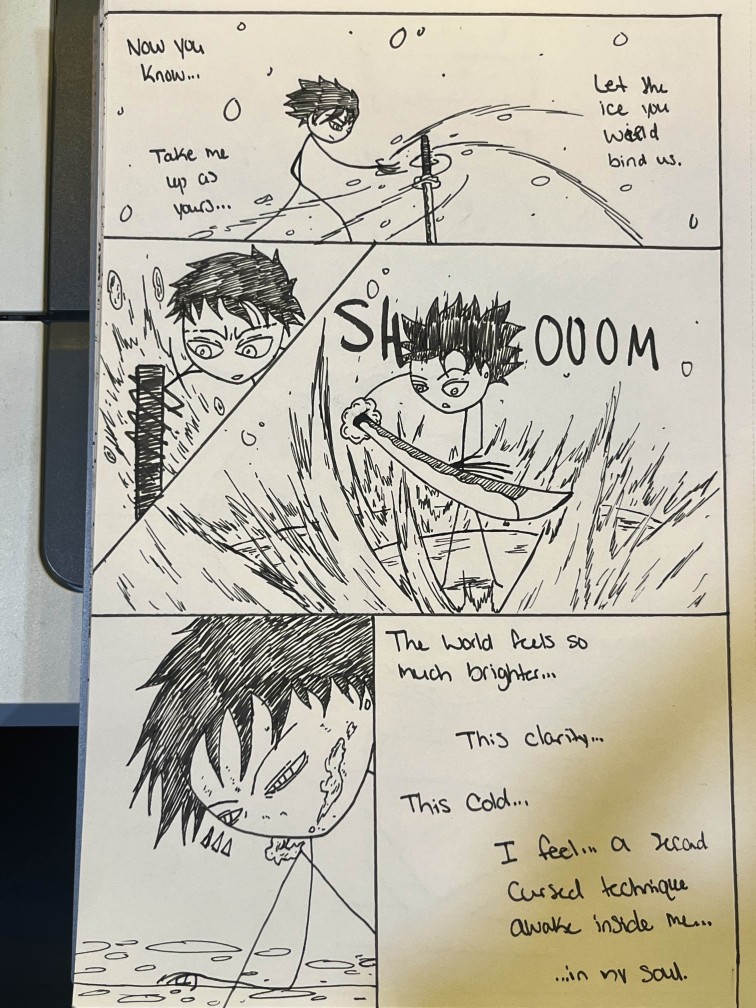 Now you
know...
Take me
up as
yours...
Let the
ice you
wield
bind us.
SH OOOM
The world feels so
much brighter...
This clarity...
This cold...
I feel... a second
cursed technique
awake inside me...
...in my soul.